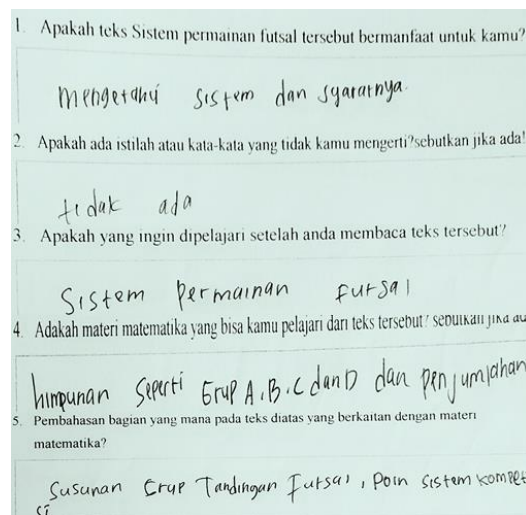 1. Apakah teks Sistem permainan futsal tersebut bermanfaat untuk kamu?
mengetahui sistem dan syaratnya.
2. Apakah ada istilah atau kata-kata yang tidak kamu mengerti?sebutkan jika ada!
tidak ada
3. Apakah yang ingin dipelajari setelah anda membaca teks tersebut?
Sistem Permainan Futsal
4. Adakah materi matematika yang bisa kamu pelajari dari teks tersebut? sebutkan jika
himpunan Seperti Grup A, B. C dan D dan penjumlahan
5. Pembahasan bagian yang mana pada teks diatas yang berkaitan dengan materi
matematika?
Susunan Grup Tandingan Futsal, Poin sistem kompet
si